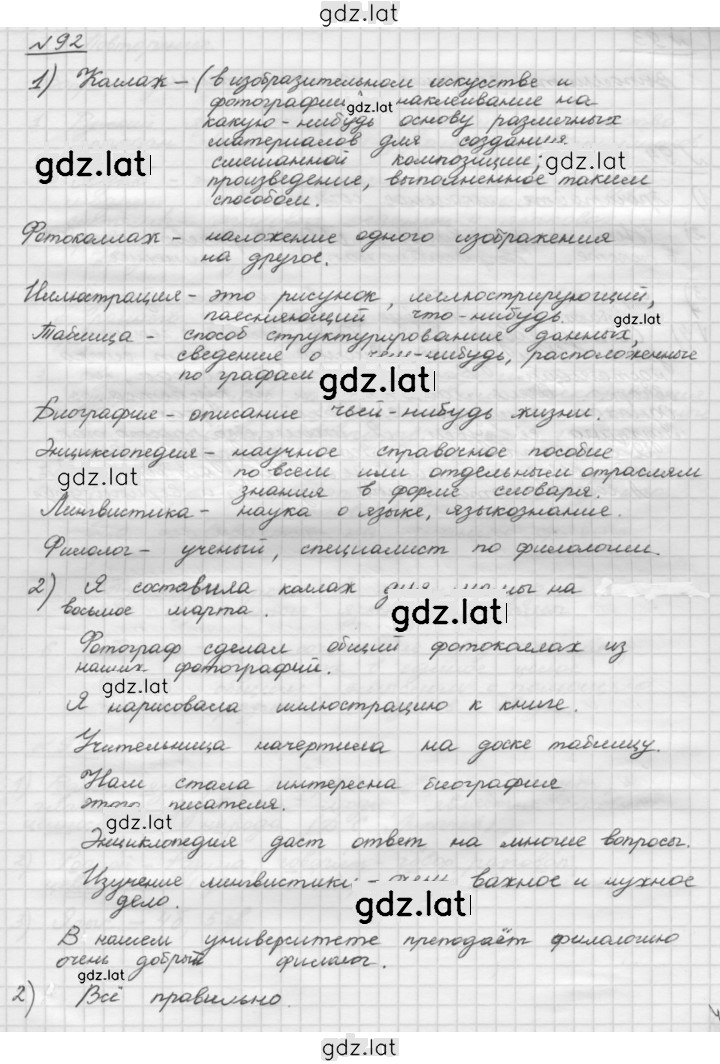 gdz.lat
№92
1) Коллаж – (в изобразительном искусстве и
фотографии gdz.lat наклеивание на
какую-нибудь основу различных
материалов для создания
gdz.lat смешанной композиции;
gdz.lat
произведение, выполненное таким
способом.
Фотоколлаж – наложение одного изображения
на другое.
Иллюстрация – это рисунок, иллюстрирующий,
поясняющий что-нибудь.
gdz.lat
Таблица – способ структурирования данных,
сведения о чем-нибудь, расположенные
по графам
gdz.lat
Биография – описание чьей-нибудь жизни.
Энциклопедия – научное справочное пособие
gdz.lat по всем или отдельным отраслям
знания в форме словаря.
Лингвистика – наука о языке, языкознание.
Филолог – ученый, специалист по филологии.
2) Я составила коллаж для мамы на
восьмое марта. gdz.lat
Фотограф сделал общий фотоколлаж из
наших фотографий.
gdz.lat
Я нарисовала иллюстрацию к книге.
Учительница начертила на доске таблицу.
Нам стала интересна биография
этого писателя.
gdz.lat
Энциклопедия даст ответ на многие вопросы.
Изучение лингвистики – важное и нужное
дело. gdz.lat
В нашем университете преподаёт филологию
очень добрый филолог.
gdz.lat
2) Всё правильно.
gdz.lat